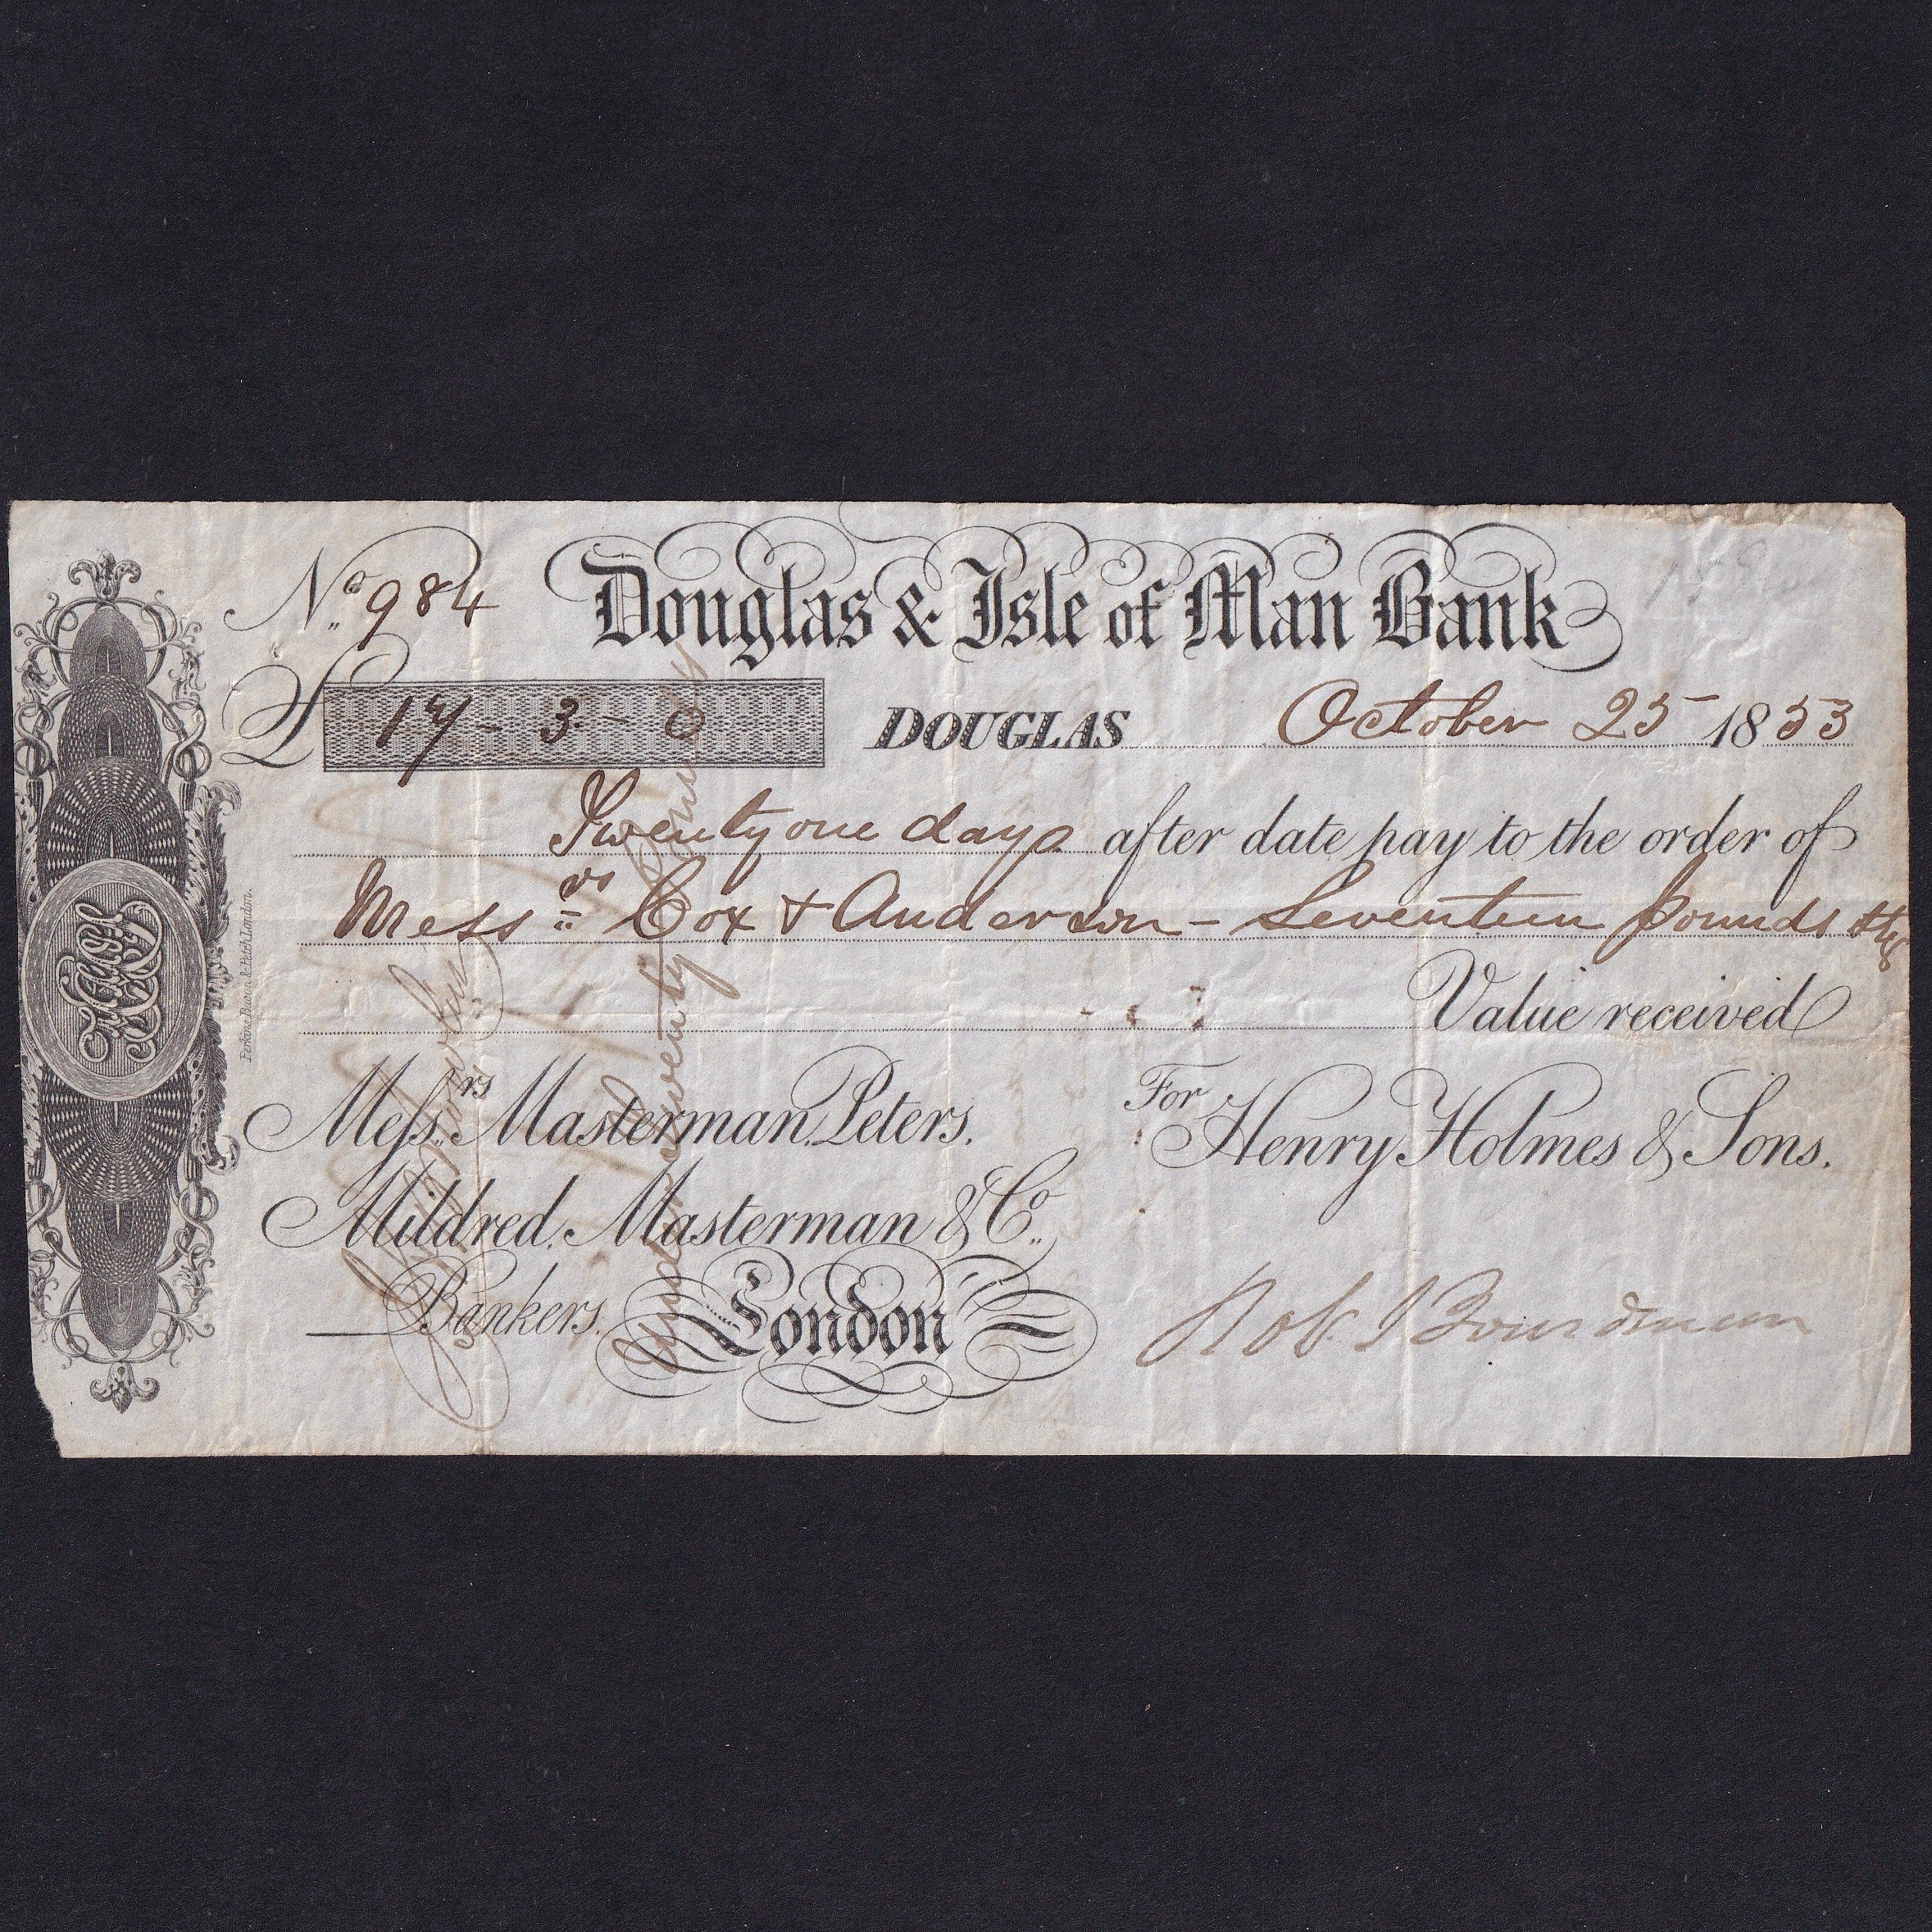 No. 984
Douglas & Isle of Man Bank
£ 17 - 3 - 0
DOUGLAS October 25 1853
Twenty one days after date pay to the order of
Messrs Cox & Anderson - Seventeen pounds
Value received
Messrs Masterman, Peters,
Mildred, Masterman & Co.
Bankers, London
For Henry Holmes & Sons.
Perkins, Bacon & Petch London.
Under Twenty